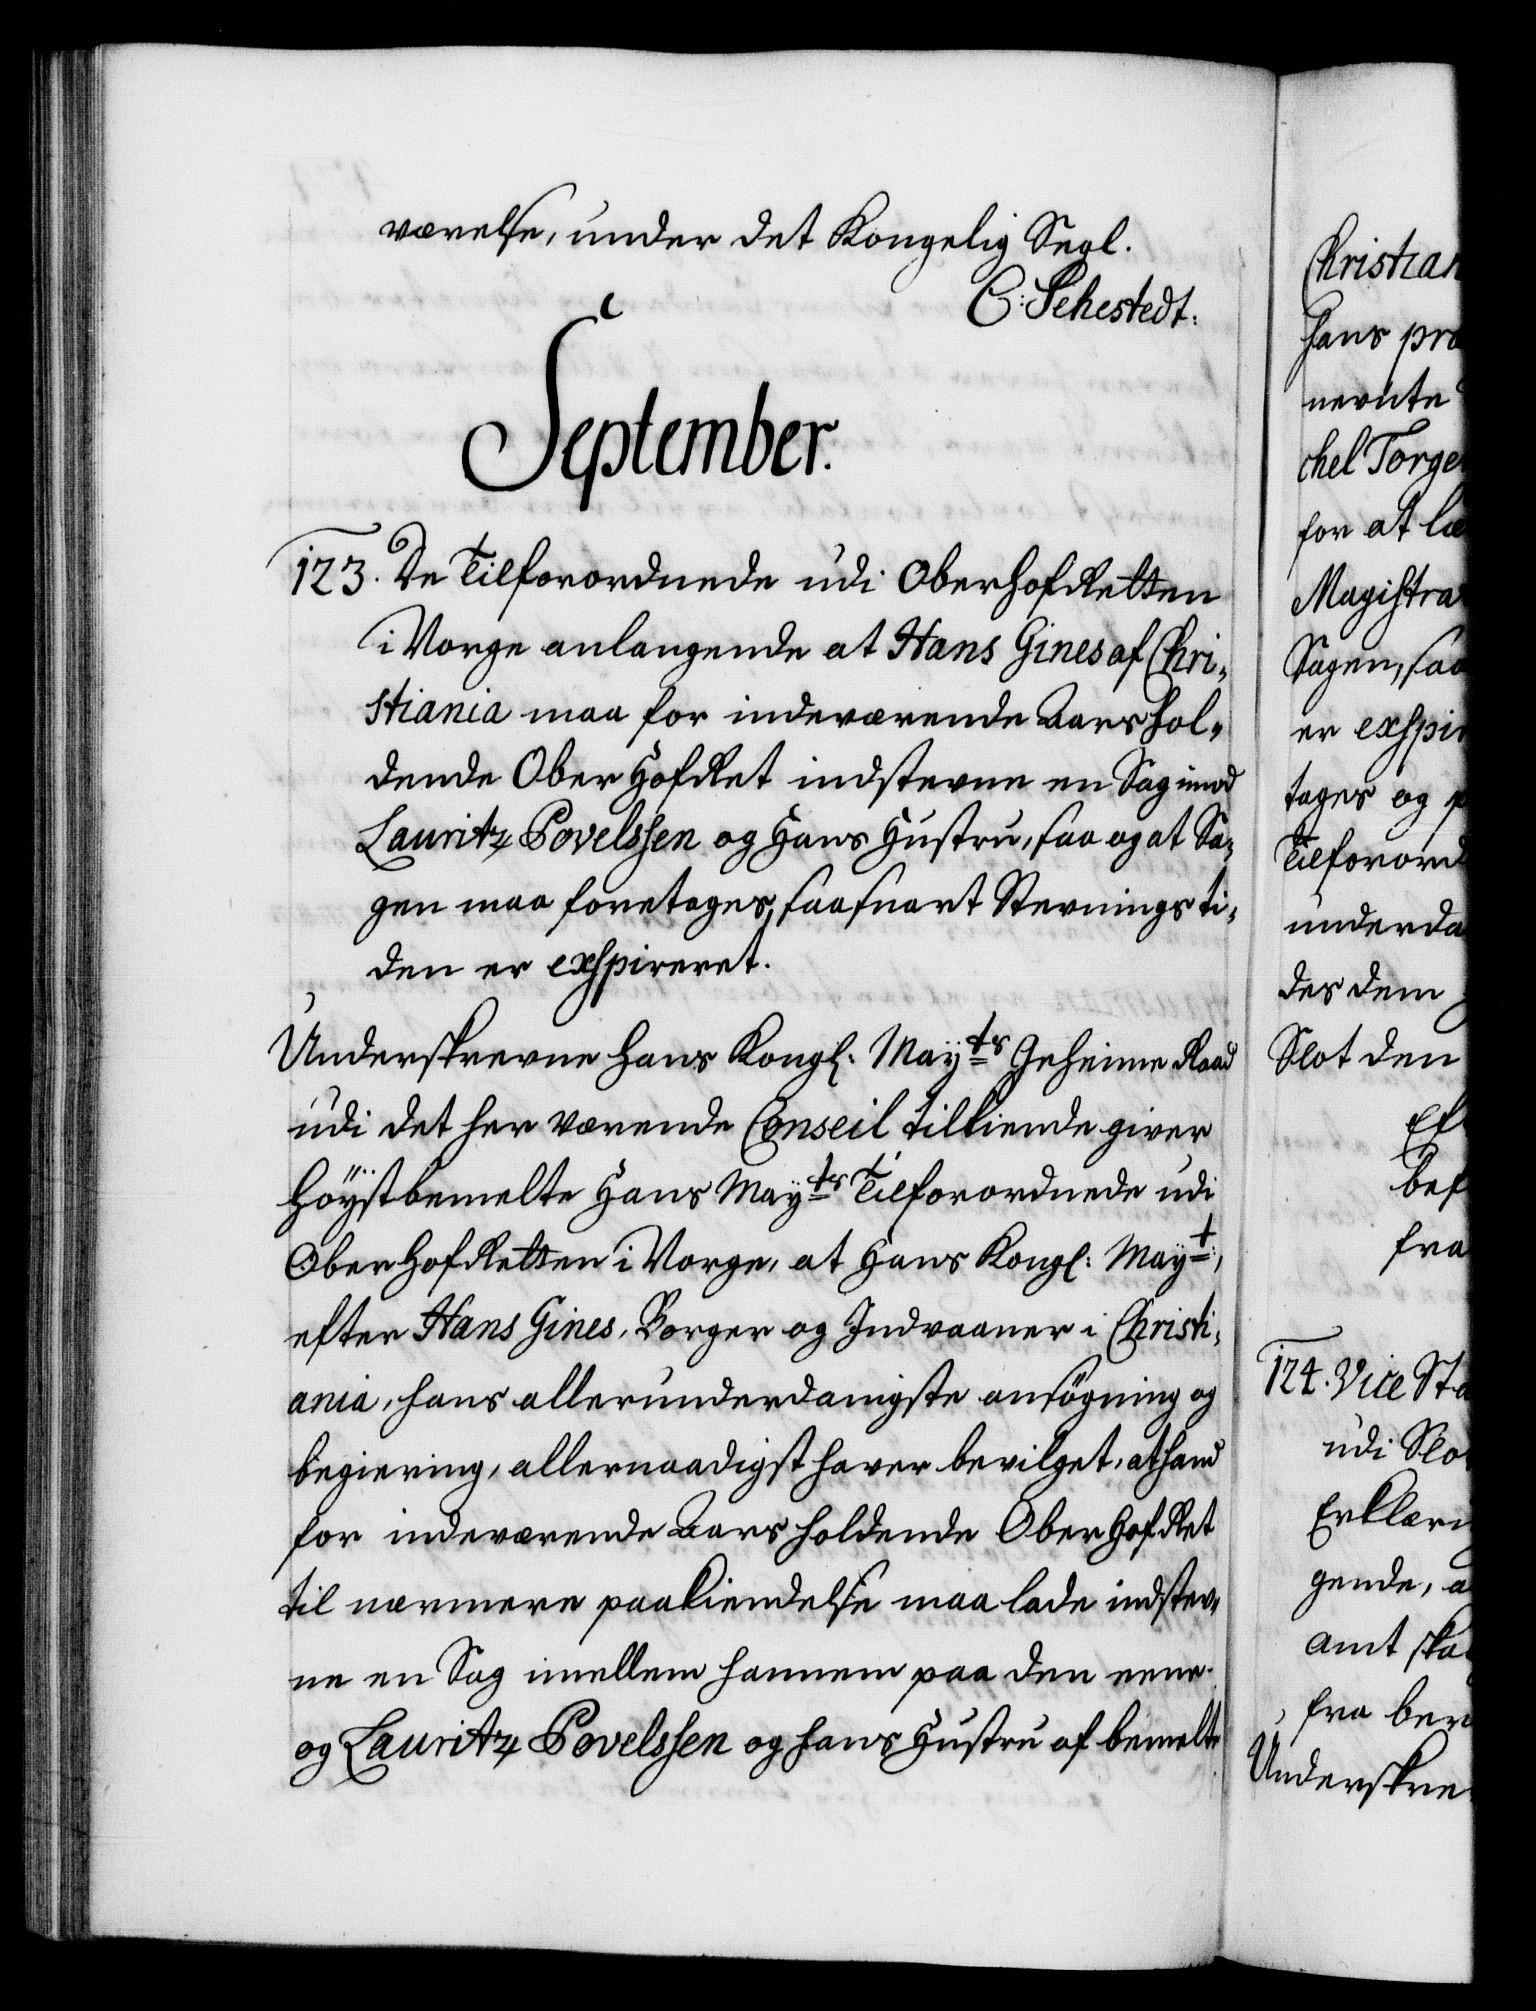 værelse, under det Kongelig Segl.
C: Sehestedt:
September.
123. De Tilforordnede udi OberhofRetten
i Norge anlangende at Hans Gines af Chri„
stiania maa for indeværende Aars hol„
dende Ober HofRet indstevne en Sag imod
Lauritz Povelssen og Hans Hustru, saa og at Sa„
gen maa foretages, saasnart Stevnings ti„
den er exspireret.
Underskrevne Hans Kongl. Mayts Geheime Raad
udi det her værende Conseil tilkiende giver
Høystbemelte Hans Mayts Tilforordnede udi
OberhofRetten i Norge, at Hans Kongl: Mayt,
efter Hans Gines, Borger og Indvaaner i Christi„
ania, hans allerunderdanigste ansøgning og
begiering, allernaadigst haver bevilget, at hand
for indeværende Aars holdende Ober HofRet
til nærmere paakiendelse maa lade indstev„
ne en Sag imellem hannem paa den eene
og Lauritz Povelssen og hans Hustru af bemelte
Christian
hans pro
nevnte
chel Torge
for at læ
Magistra
Sagen, saa
er exspir
tages og p
Tilforord
underda
des dem
Slot den
Ef
bef
fra
124. Vice Sta
udi Slo
Erklæri
gende, a
Amt ska
fra ber
Underskre